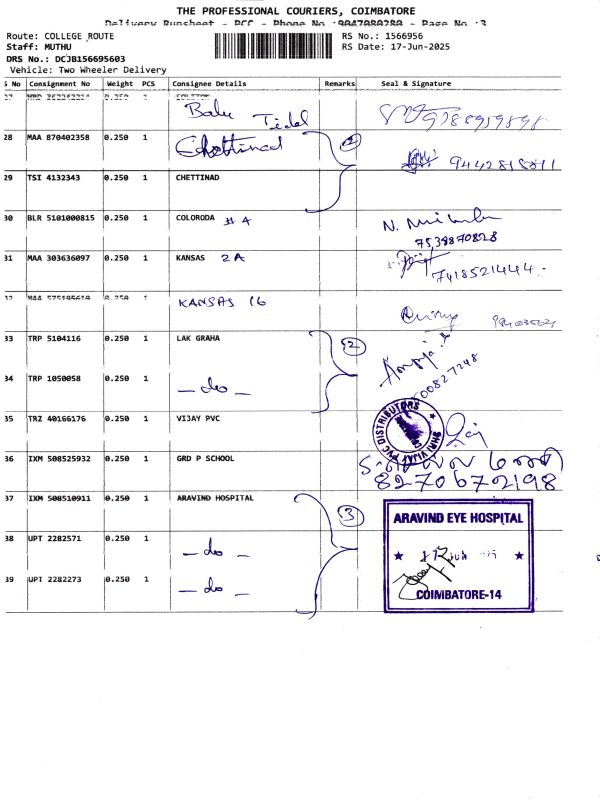 THE PROFESSIONAL COURIERS, COIMBATORE
Delivery Runsheet - PCC - Phone No :9047080280 - Page No :3
Route: COLLEGE ROUTE RS No.: 1566956
Staff: MUTHU RS Date: 17-Jun-2025
DRS No.: DCJB156695603
Vehicle: Two Wheeler Delivery
S No Consignment No Weight PCS Consignee Details Remarks Seal & Signature
0.250 1
Balu Tidel
28 MAA 870402358 0.250 1 Chettinad 2
9442815811
29 TSI 4132343 0.250 1 CHETTINAD
30 BLR 5101000815 0.250 1 COLORODA #4
7538870828
31 MAA 303636097 0.250 1 KANSAS 2A
7418521444
32 MAA 575195610 0.250 1 KANSAS 16
33 TRP 5104116 0.250 1 LAK GRAHA 2
34 TRP 1050058 0.250 1 - do -
35 TRZ 40166176 0.250 1 VIJAY PVC
SHRI VIJAY PVC DISTRIBUTORS
36 IXM 508525932 0.250 1 GRD P SCHOOL
8270672198
37 IXM 508510911 0.250 1 ARAVIND HOSPITAL 3
ARAVIND EYE HOSPITAL
38 UPT 2282571 0.250 1 - do -
39 UPT 2282273 0.250 1 - do -
COIMBATORE-14